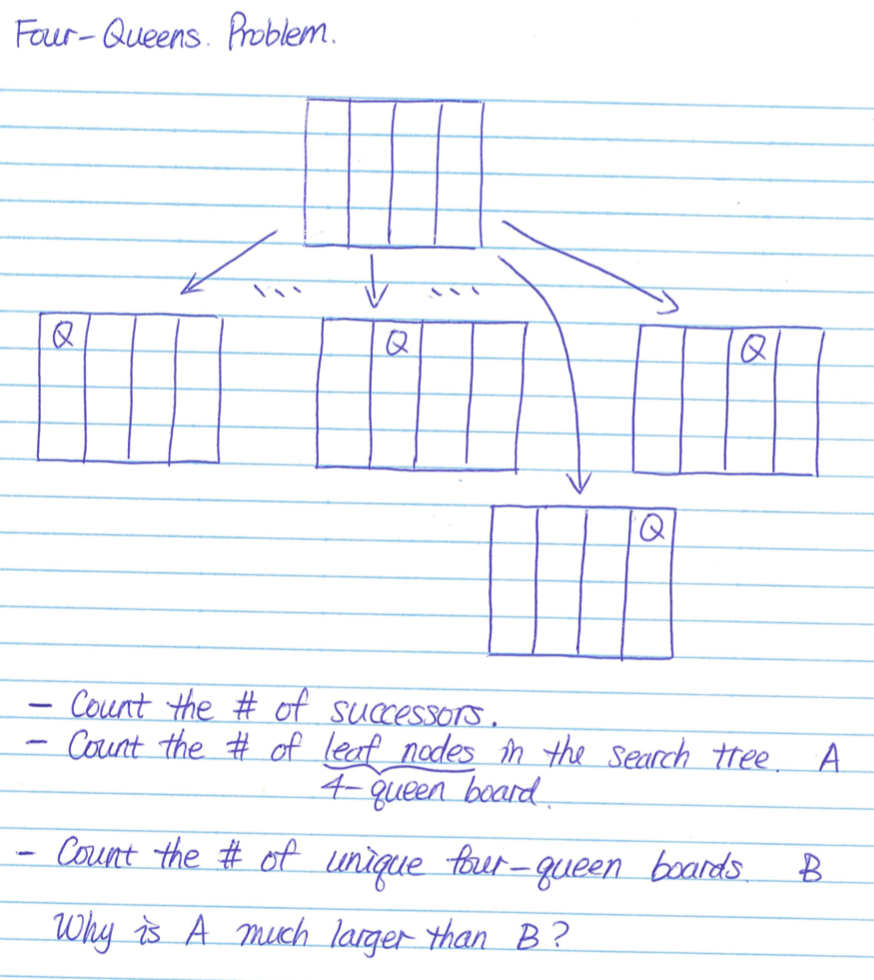 Four-Queens. Problem.
Q
Q
Q
Q
- Count the # of successors.
- Count the # of leaf nodes in the search tree. A
4-queen board.
- Count the # of unique four-queen boards. B
Why is A much larger than B?